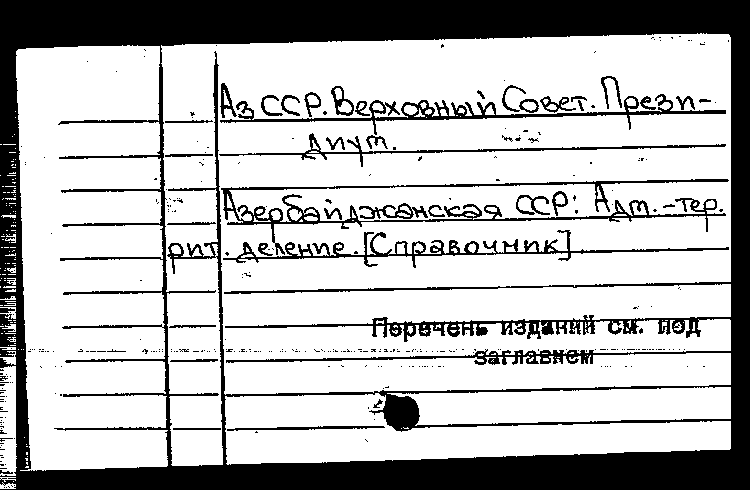 Аз ССР. Верховный Совет. Прези-
диум.
Азербайджанская ССР: Адм.-тер.
рит. деление. [Справочник]
Перечень изданий см. под
заглавием